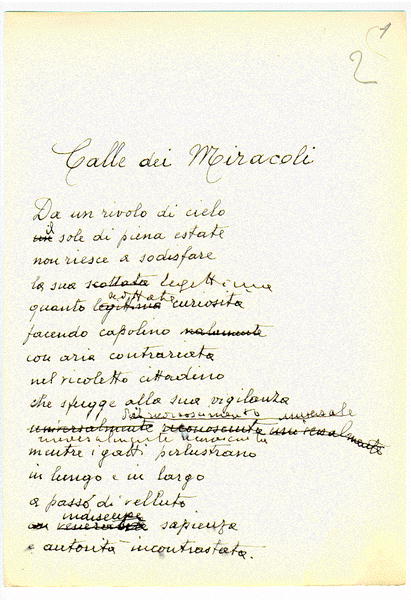 2
1
Calle dei Miracoli
Da un rivolo di cielo
un il sole di piena estate
non riesce a sodisfare
la sua scottata legittima
quanto legittima scottata curiosità
facendo capolino
con aria contrariata
nel vicoletto cittadino
che sfugge alla sua vigilanza
riconosciuta universale
universalmente riconosciuta universalmente
universalmente riconosciuta
mentre i gatti perlustrano
in lungo e in largo
a passo di velluto
venerabile sapienza
e autorità incontrastata.